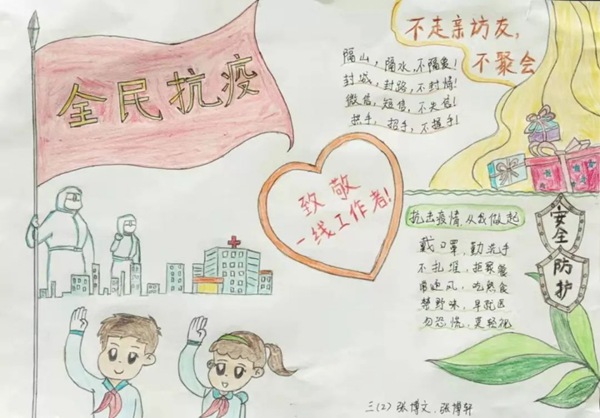 全民抗疫
不走亲访友,
不聚会
隔山,隔水,不隔爱!
封城,封路,不封情!
微信,短信,不失信!
拱手,招手,不握手!
致敬
一线工作者!
抗击疫情从我做起
戴口罩,勤洗手
不扎堆,拒聚餐
常通风,吃熟食
禁野味,早就医
勿恐慌,莫轻视
安全
防护
三(2)张博文、张博轩